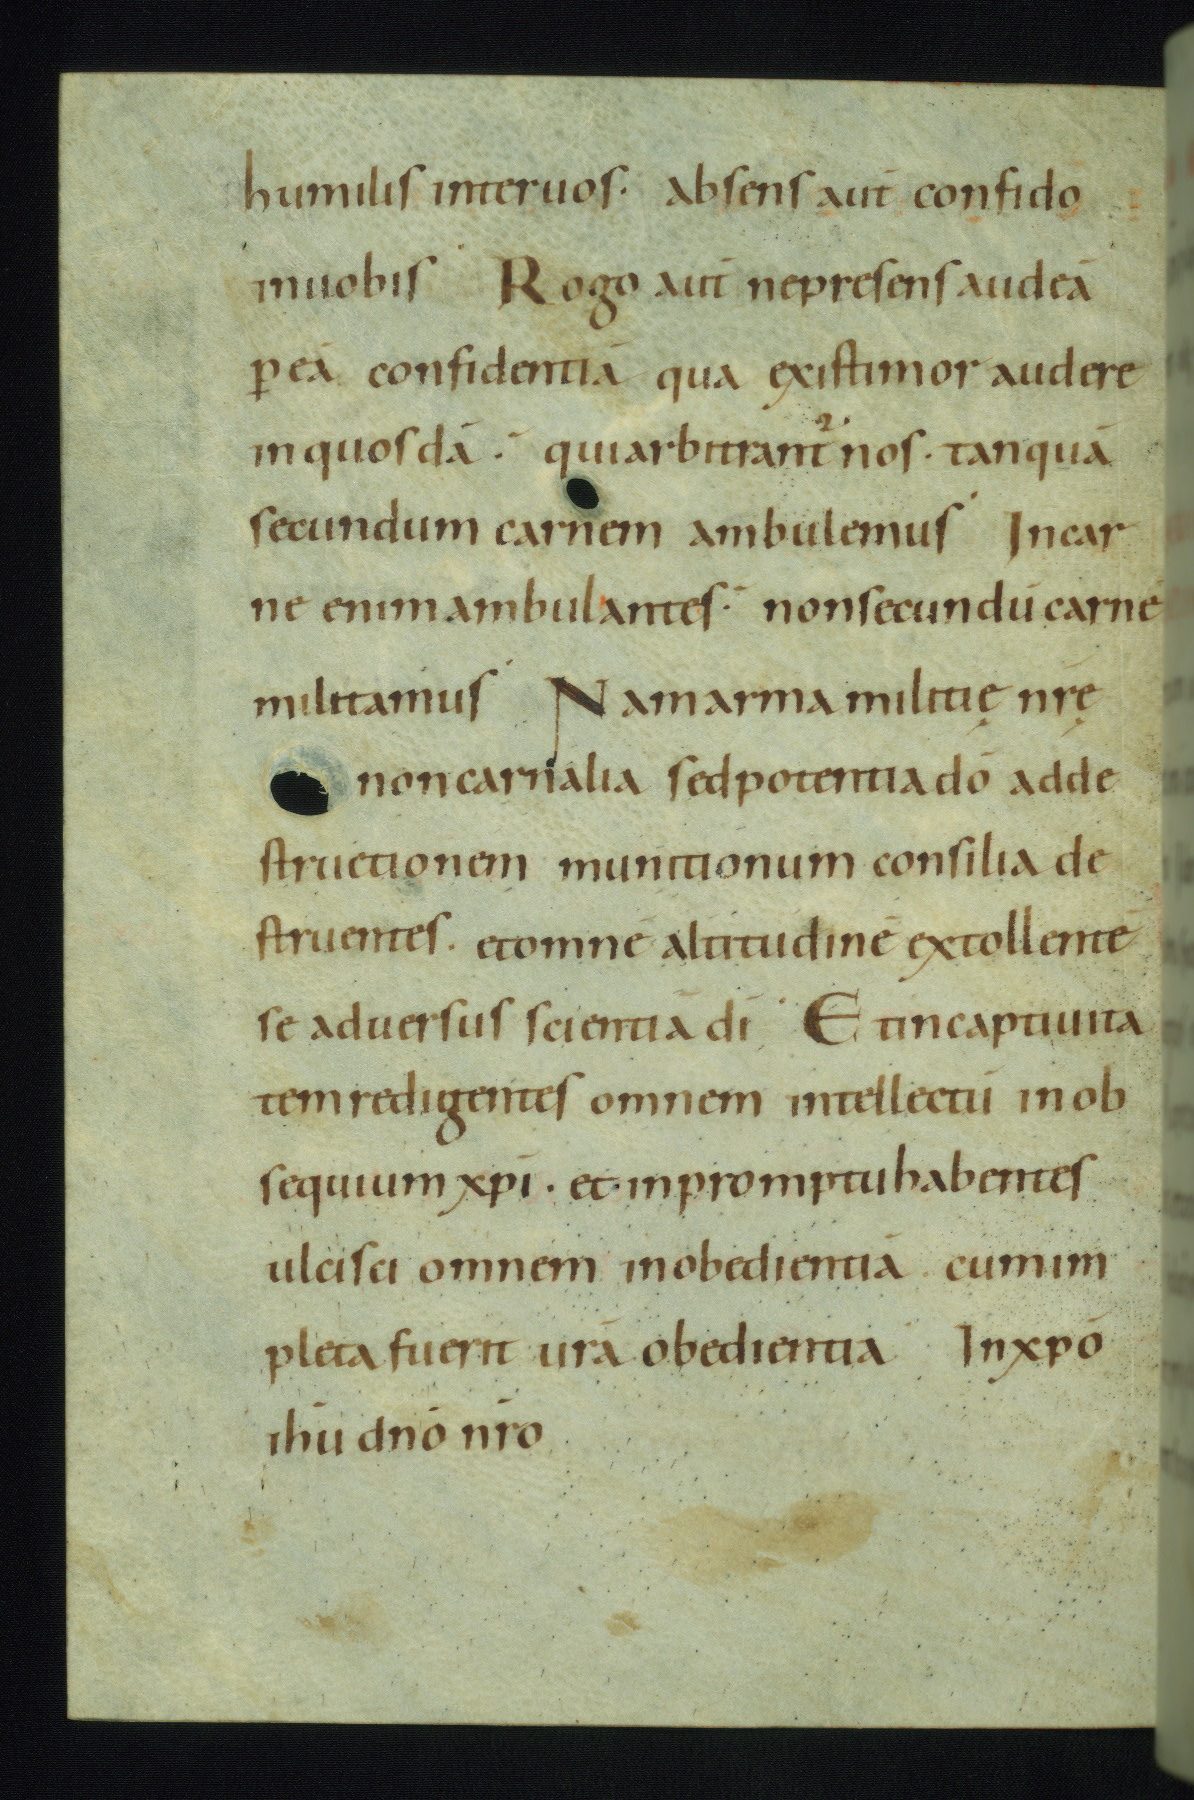 humilis interuos· absens aut̄ confido
inuobis Rogo aut̄ nepresens audeā
ꝑ eā confidentiā qua existimor audere
inquosdā · quiarbitrant᷑ nos · tanquā
secundum carnem ambulemus Incar
ne enim ambulantes · nonsecundū carnē
militamus Namarma militię nr̄ę
noncarnalia sedpotentia dō adde
structionem munitionum consilia de
struentes · etomnē altitudinē extollentē
se aduersus scientiā dī Et incaptiuita
temredigentes omnem intellectū inob
sequium xp̄i · et inpromptuhabentes
ulcisci omnem inobedientiā cumim
pleta fuerit ur̄ā obedientia Inxp̄o
ihū dnō nr̄o